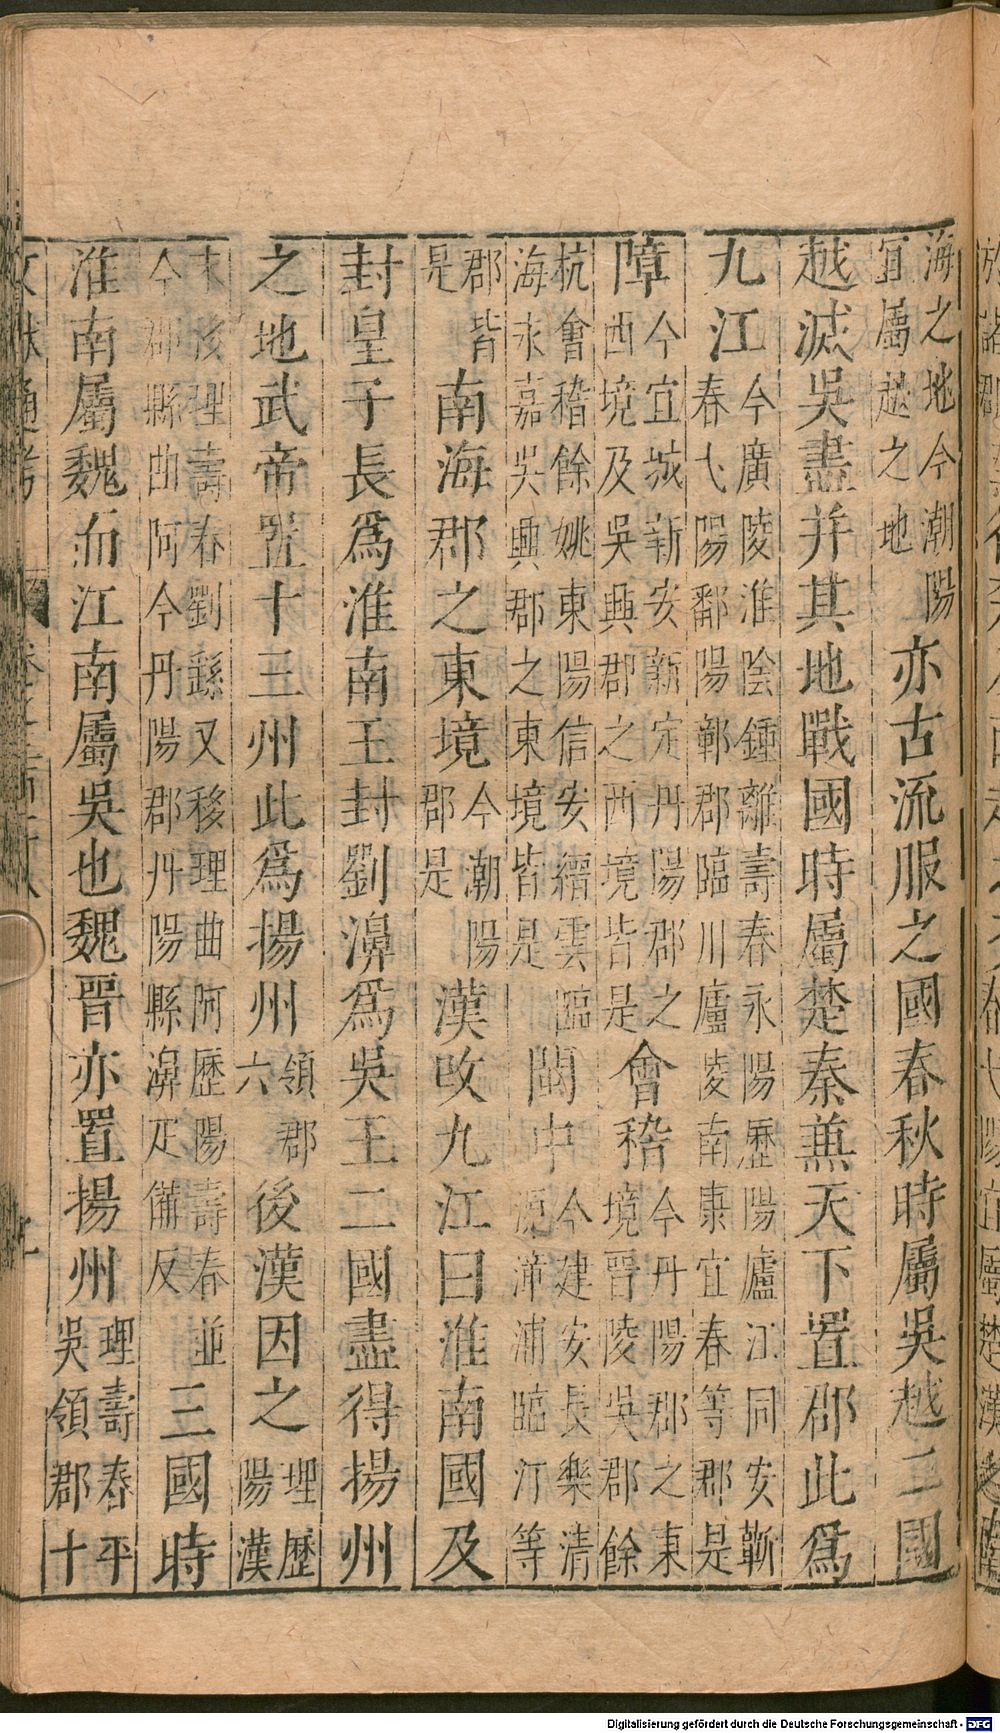 海之地今潮陽
宜屬越之地
亦古流服之國春秋時屬吳越二國
越滅吳盡并其地戰國時屬楚秦兼天下置郡此爲
九江
今廣陵淮陰鍾離壽春永陽歷陽廬江同安蘄
春弋陽鄱陽鄣郡臨川廬陵南康宜春等郡是
障
今宜城新安新定丹陽郡之
西境及吳興郡之西境皆是
會稽
今丹陽郡之東
境晉陵吳郡餘
杭會稽餘姚東陽信安縉雲臨
海永嘉吳興郡之東境皆是
閩中
今建安長樂清
源漳浦臨汀等
郡皆
是
南海郡之東境
今潮陽
郡是
漢改九江曰淮南國及
封皇子長爲淮南王封劉濞爲吳王二國盡得揚州
之地武帝置十三州此爲揚州
領郡
六
後漢因之
理歷
陽漢
末後理壽春劉繇又移理曲阿歷陽壽春並
今郡縣曲阿今丹陽郡丹陽縣濞疋備反
三國時
淮南屬魏而江南屬吳也魏晉亦置揚州
理壽春平
吳領郡十
文獻通考
Digitalisierung gefördert durch die Deutsche Forschungsgemeinschaft - DFG